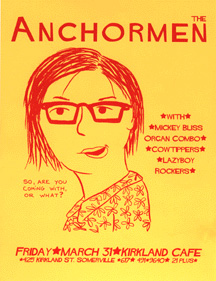 THE
ANCHORMEN
★WITH★
★MICKEY BLISS
ORGAN COMBO★
★COWTIPPERS
★LAZYBOY
ROCKERS★
SO, ARE YOU
COMING WITH,
OR WHAT?
FRIDAY★MARCH 31★KIRKLAND CAFE
★425 KIRKLAND ST. SOMERVILLE ★
21 PLUS★